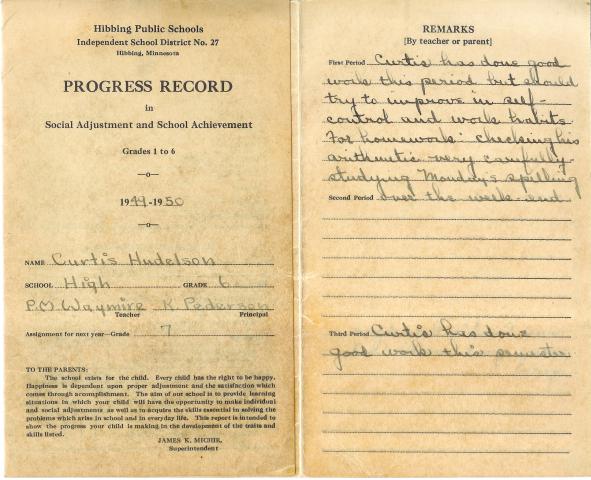 Hibbing Public Schools
Independent School District No. 27
Hibbing, Minnesota
PROGRESS RECORD
in
Social Adjustment and School Achievement
Grades 1 to 6
—o—
1949-1950
—o—
NAME Curtis Hudelson
SCHOOL High GRADE 6
P.M. Waymire K. Pederson
Teacher Principal
Assignment for next year—Grade 7
TO THE PARENTS:
The school exists for the child. Every child has the right to be happy.
Happiness is dependent upon proper adjustment and the satisfaction which
comes through acomplishment. The aim of our school is to provide learning
situations in which your child will have the opportunity to make individual
and social adjustments as well as to acquire the skills essential in solving the
problems which arise in school and in everyday life. This report is intended to
show the progress your child is making in the development of the traits and
skills listed.
JAMES K. MICHIE,
Superintendent
REMARKS
[By teacher or parent]
First Period Curtis has done good
work this period but should
try to improve in self-
control and work habits.
For homework: checking his
arithmetic very carefully-
studying Monday's spelling
Second Period over the week-end
Third Period Curtis has done
good work this semester